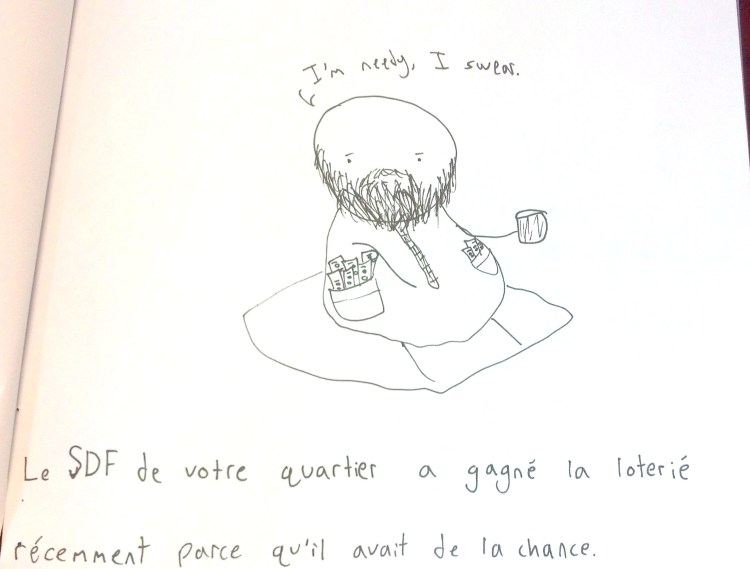 I'm needy, I swear.
Le SDF de votre quartier a gagné la loterié
récemment parce qu'il avait de la chance.